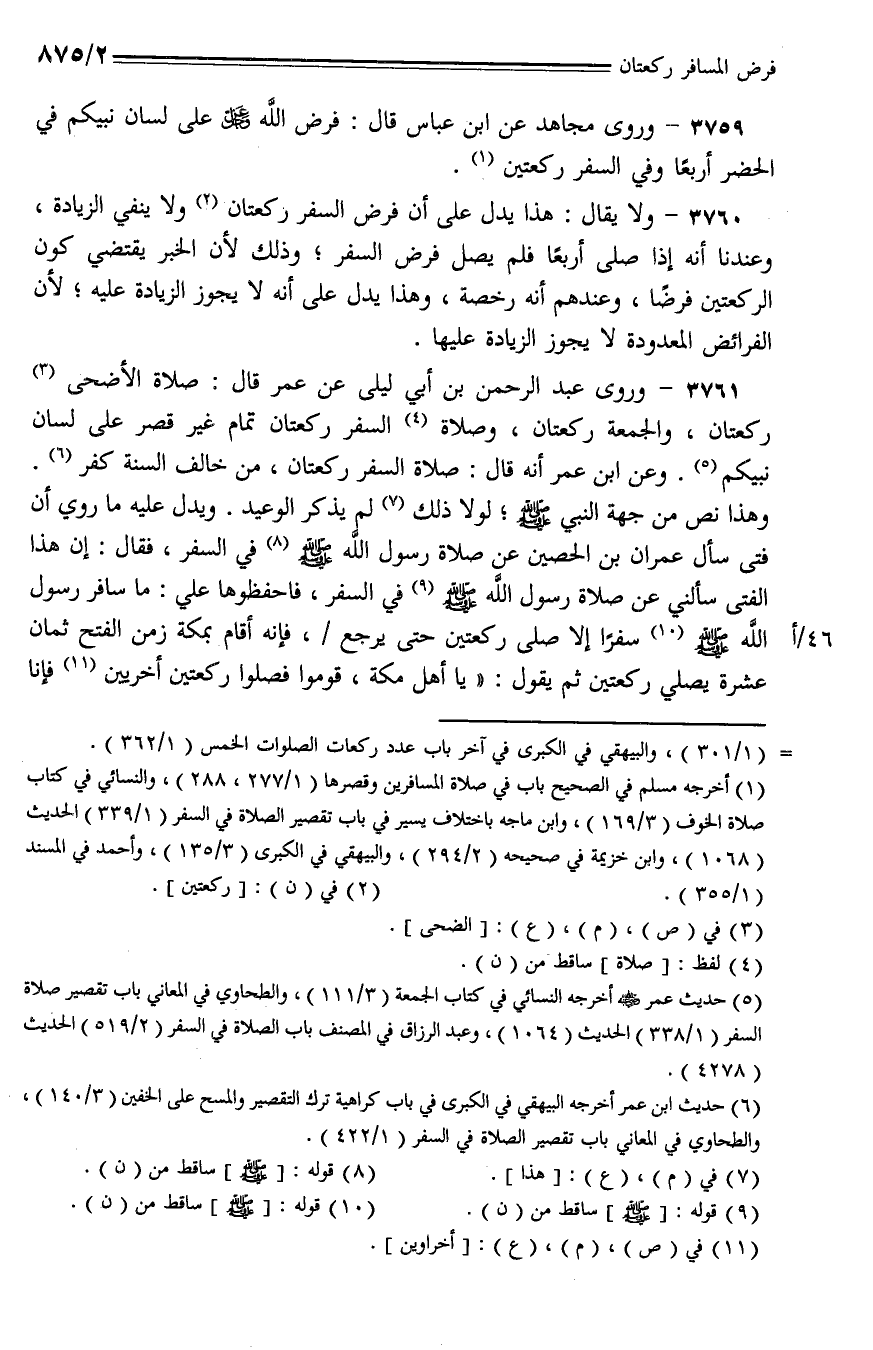 فرض المسافر ركعتان ٨٧٥/٢
٣٧٥٩ – وروى مجاهد عن ابن عباس قال : فرض اللَّه ﷿ على لسان نبيكم في
الحضر أربعًا وفي السفر ركعتين (١) .
٣٧٦٠ – ولا يقال : هذا يدل على أن فرض السفر ركعتان (٢) ولا ينفي الزيادة ،
وعندنا أنه إذا صلى أربعًا فلم يصل فرض السفر ؛ وذلك لأن الخبر يقتضي كون
الركعتين فرضًا ، وعندهم أنه رخصة ، وهذا يدل على أنه لا يجوز الزيادة عليه ؛ لأن
الفرائض المعدودة لا يجوز الزيادة عليها .
٣٧٦١ – وروى عبد الرحمن بن أبي ليلى عن عمر قال : صلاة الأضحى (٣)
ركعتان ، والجمعة ركعتان ، وصلاة (٤) السفر ركعتان تمام غير قصر على لسان
نبيكم (٥) . وعن ابن عمر أنه قال : صلاة السفر ركعتان ، من خالف السنة كفر (٦) .
وهذا نص من جهة النبي ﷺ ؛ لولا ذلك (٧) لم يذكر الوعيد . ويدل عليه ما روي أن
فتى سأل عمران بن الحصين عن صلاة رسول اللَّه ﷺ (٨) في السفر ، فقال : إن هذا
الفتى سألني عن صلاة رسول اللَّه ﷺ (٩) في السفر ، فاحفظوها علي : ما سافر رسول
٤٦/أ اللَّه ﷺ (١٠) سفرًا إلا صلى ركعتين حتى يرجع / ، فإنه أقام بمكة زمن الفتح ثمان
عشرة يصلي ركعتين ثم يقول : « يا أهل مكة ، قوموا فصلوا ركعتين أخريين (١١) فإنا
= ( ٣٠١/١ ) ، والبيهقي في الكبرى في آخر باب عدد ركعات الصلوات الخمس ( ٣٦٢/١ ) .
(١) أخرجه مسلم في الصحيح باب في صلاة المسافرين وقصرها ( ٢٧٧/١ ، ٢٨٨ ) ، والنسائي في كتاب
صلاة الخوف ( ١٦٩/٣ ) ، وابن ماجه باختلاف يسير في باب تقصير الصلاة في السفر ( ٣٣٩/١ ) الحديث
( ١٠٦٨ ) ، وابن خزيمة في صحيحه ( ٢٩٤/٢ ) ، والبيهقي في الكبرى ( ١٣٥/٣ ) ، وأحمد في المسند
( ٣٥٥/١ ) . (٢) في ( ن ) : [ ركعتين ] .
(٣) في ( ص ) ، ( م ) ، ( ع ) : [ الضحى ] .
(٤) لفظ : [ صلاة ] ساقط من ( ن ) .
(٥) حديث عمر ﷺ أخرجه النسائي في كتاب الجمعة ( ١١١/٣ ) ، والطحاوي في المعاني باب تقصير صلاة
السفر ( ٣٣٨/١ ) الحديث ( ١٠٦٤ ) ، وعبد الرزاق في المصنف باب الصلاة في السفر ( ٥١٩/٢ ) الحديث
( ٤٢٧٨ ) .
(٦) حديث ابن عمر أخرجه البيهقي في الكبرى في باب كراهية ترك التقصير والمسح على الخفين ( ١٤٠/٣ ) ،
والطحاوي في المعاني باب تقصير الصلاة في السفر ( ٤٢٢/١ ) .
(٧) في ( م ) ، ( ع ) : [ هذا ] . (٨) قوله : [ ﷺ ] ساقط من ( ن ) .
(٩) قوله : [ ﷺ ] ساقط من ( ن ) . (١٠) قوله : [ ﷺ ] ساقط من ( ن ) .
(١١) في ( ص ) ، ( م ) ، ( ع ) : [ أخراوين ] .